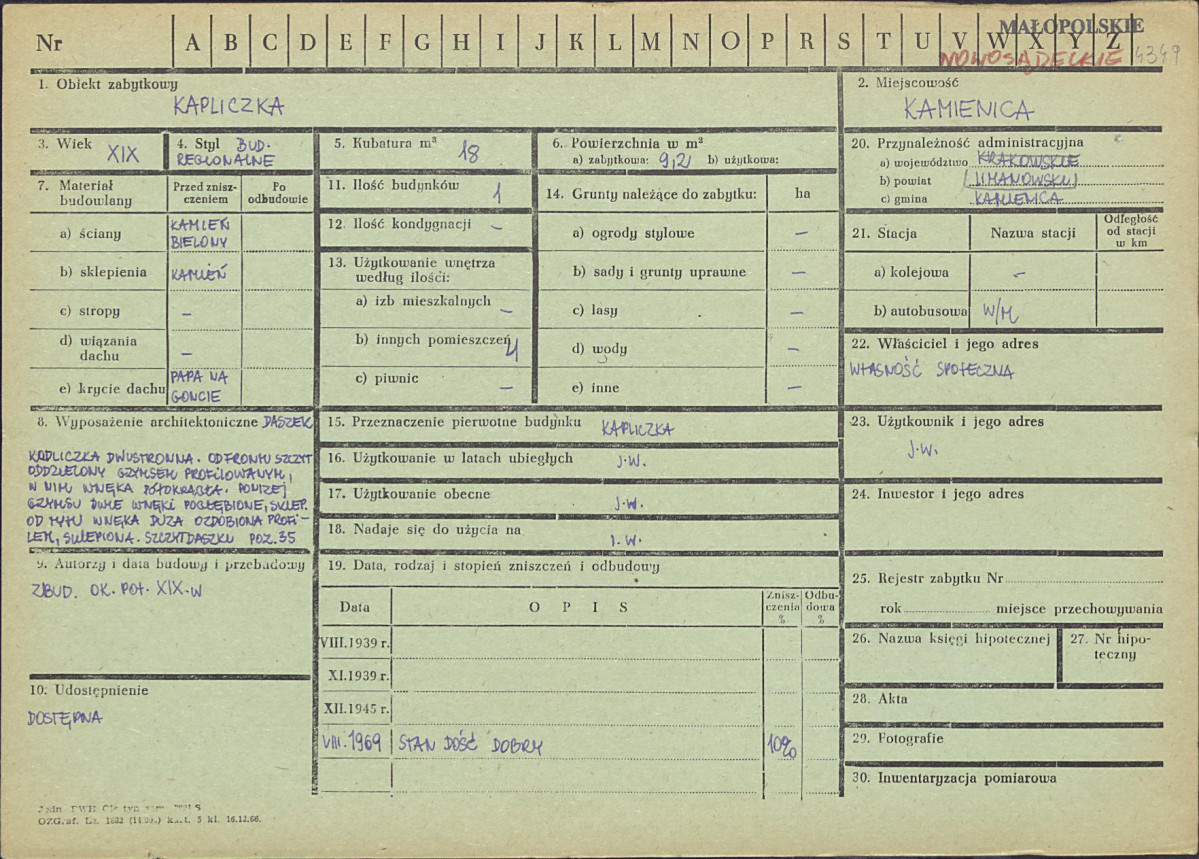 MAŁOPOLSKIE
Nr A B C D E F G H I J K L M N O P R S T U V W X Y Z
NOWOSĄDECKIE 4349
1. Obiekt zabytkowy
KAPLICZKA
2. Miejscowość
KAMIENICA
3. Wiek XIX
4. Styl BUD.
REGIONALNE
5. Kubatura m³ 18
6. Powierzchnia w m²
a) zabytkowa: 9,2 b) użytkowa:
20. Przynależność administracyjna
a) województwo KRAKOWSKIE
b) powiat (LIMANOWSKI)
c) gmina KAMIENICA
7. Materiał budowlany
Przed zniszczeniem
Po odbudowie
a) ściany KAMIEŃ
BIELONY
b) sklepienia KAMIEŃ
c) stropy –
d) wiązania
dachu –
e) krycie dachu PAPA NA
GONCIE
11. Ilość budynków 1
12. Ilość kondygnacji –
13. Użytkowanie wnętrza
według ilości:
a) izb mieszkalnych –
b) innych pomieszczeń
c) piwnic –
14. Grunty należące do zabytku: ha
a) ogrody stylowe –
b) sady i grunty uprawne –
c) lasy –
d) wody –
e) inne –
21. Stacja Nazwa stacji
Odległość
od stacji
w km
a) kolejowa –
b) autobusowa W/M
22. Właściciel i jego adres
WŁASNOŚĆ SPOŁECZNA
8. Wyposażenie architektoniczne DASZEK
KAPLICZKA DWUSTRONNA. OD FRONTU SZCZYT
ODDZIELONY GZYMSEM PROFILOWANYM,
W NIM WNĘKA PÓŁOKRĄGŁA. PONIŻEJ
GZYMSU DWIE WNĘKI POGŁĘBIONE, SKLEP.
OD TYŁU WNĘKA DUŻA OZDOBIONA PROFI-
LEM, SKLEPIONA. SZCZYT DASZKU POZ. 35
15. Przeznaczenie pierwotne budynku KAPLICZKA
16. Użytkowanie w latach ubiegłych J.W.
17. Użytkowanie obecne J.W.
18. Nadaje się do użycia na J.W.
23. Użytkownik i jego adres
J.W.
24. Inwestor i jego adres
9. Autorzy i data budowy i przebudowy
ZBUD. OK. POŁ. XIX. W
10. Udostępnienie
DOSTĘPNA
19. Data, rodzaj i stopień zniszczeń i odbudowy
Data OPIS
Zniszczenia %
Odbudowa %
VIII.1939 r.
XI.1939 r.
XII.1945 r.
VIII.1969 STAN DOŚĆ DOBRY 10%
25. Rejestr zabytku Nr
rok miejsce przechowywania
26. Nazwa księgi hipotecznej
27. Nr hipo-
teczny
28. Akta
29. Fotografie
30. Inwentaryzacja pomiarowa
OZGraf. Lz. 1682 5 kl. 16.12.66.